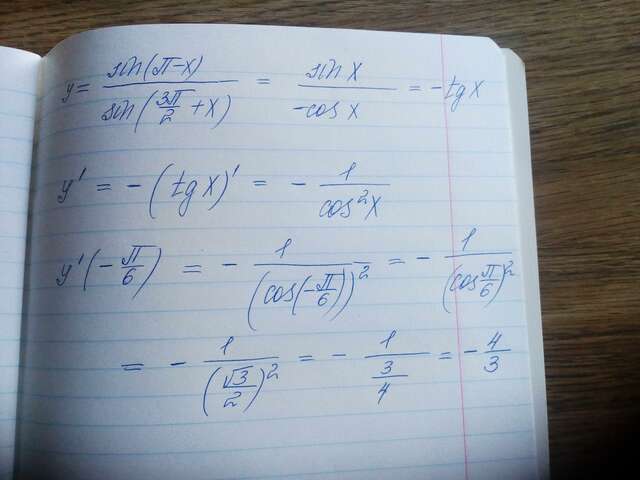 y = sin(π-x) / sin(3π/2 + x) = sin x / -cos x = - tg x
y' = - (tg x)' = - 1 / cos²x
y'(-π/6) = - 1 / (cos(-π/6))² = - 1 / (cos π/6)²
= - 1 / (√3/2)² = - 1 / (3/4) = - 4/3